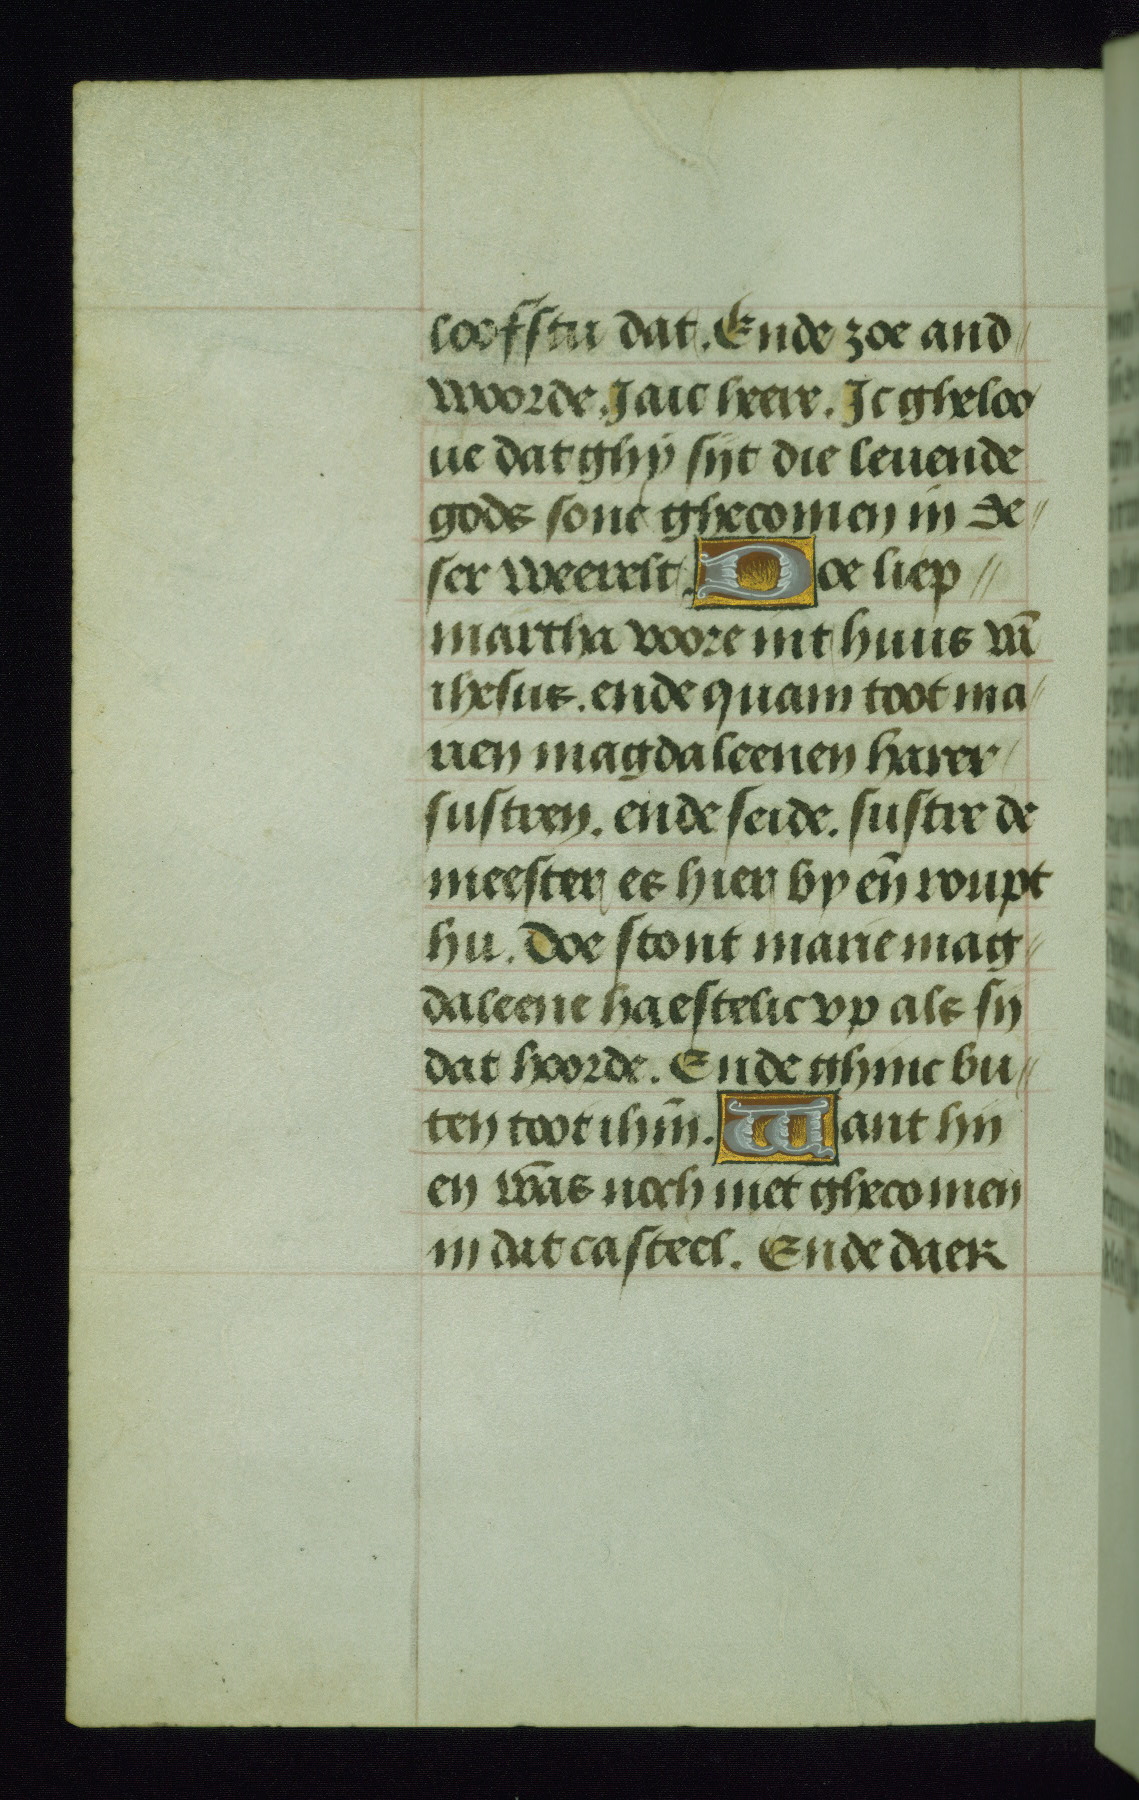 loofstu dat. Ende zoe and
woorde. Ja ic heere. Ic gheloo
ue dat ghÿ sÿt die leuende
gods sone ghecomen in de
ser weerelt. Doe liep
martha voore int huus vā
ihesus. ende quam toot ma
rien magdaleenen harer
sustren. ende seide. sustre de
meester es hier by eñ roupt
hu. Doe stont marie mag
daleene haestelic vp als sy
dat hoorde. Ende ghinc bu
ten toot ihm̄. Want hij
en was noch niet ghecomen
in dat casteel. Ende daer